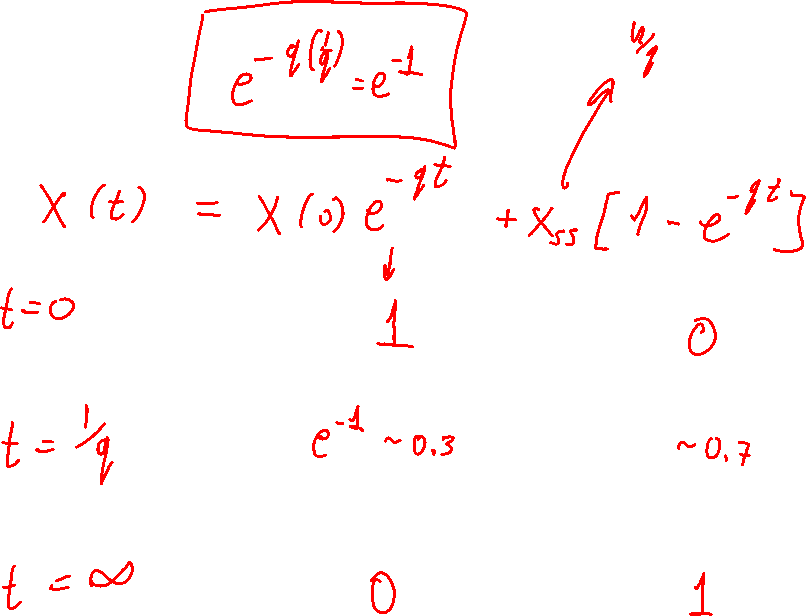 e^{-q(1/q)} = e^{-1}
u/q
X(t) = X(0) e^{-qt} + X_{ss} [1 - e^{-qt}]
t=0 1 0
t = 1/q e^{-1} ~0.3 ~0.7
t = ∞ 0 1